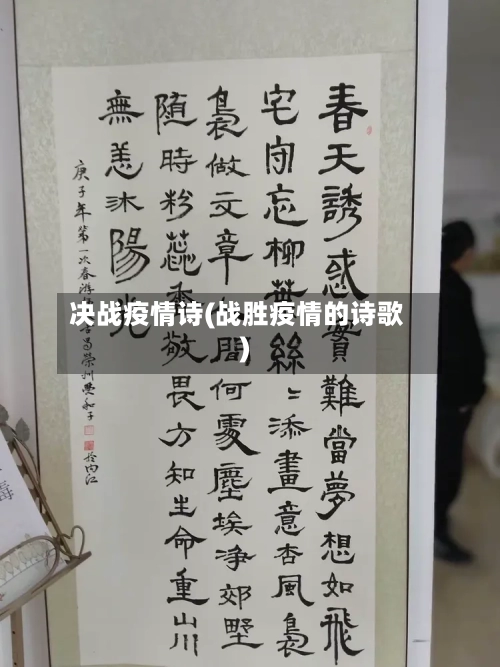 决战疫情诗(战胜疫情的诗歌
)
春天誘惑實難當夢想如飛
宅守忘柳絲〻添畫意杏風裊
裊做文章間何處塵埃净郊野
随時粉蕊香敬畏方知生命重山川
無恙沐陽光
庚子年第一次春游榮州子
於内江